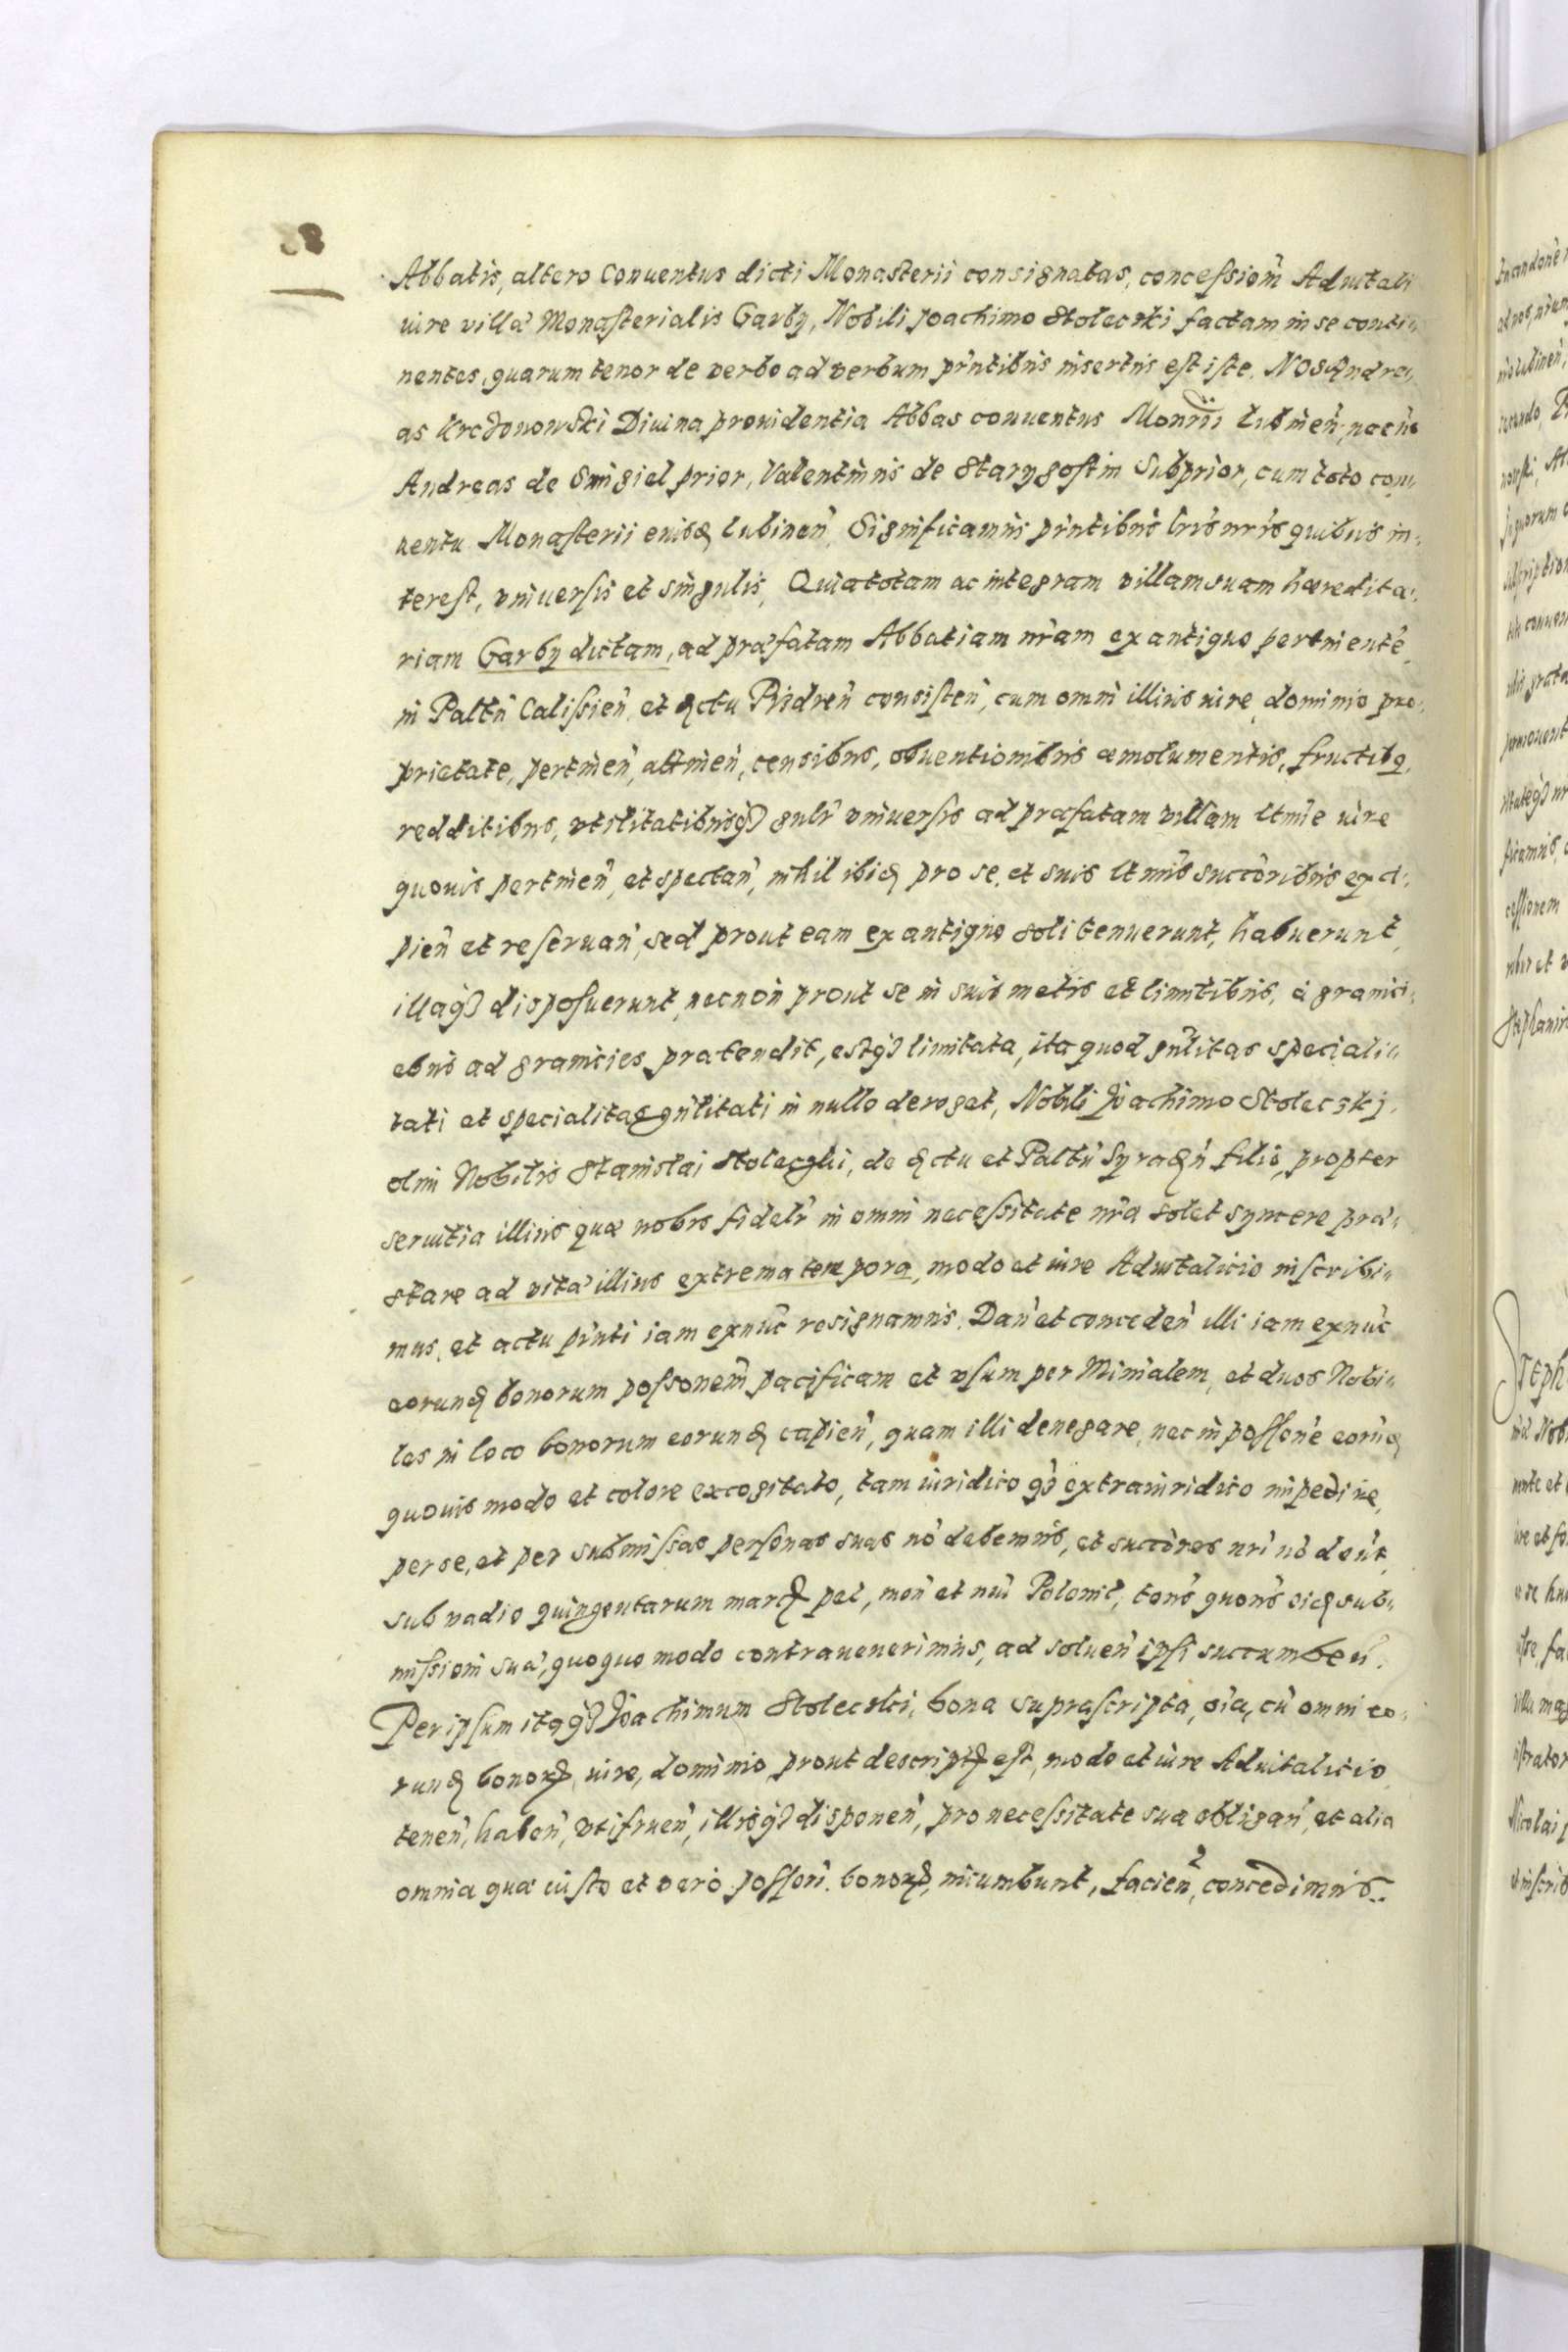 88
Abbatis, altero Conuentus dicti Monasterii consignatas, concessiom̃ Aduitali
iure villæ Monasterialis Garby, Nobili Joachimo Stolecski factam in se conti„
nentes, quarum tenor de verbo ad verbum pñtibus insertus est iste. NOS Andre„
as Krczonowski Diuina prouidentia Abbas conuentus Monrii Lubineñ, necnõ
Andreas de Smigiel prior, Valentinus de Starygostin Subprior, cum toto con„
uentu Monasterii eiusđ Lubineñ, Significamus pñtibus lris nris quibus in„
terest, vniuersis et singulis, Quia totam ac integram villam suam hæredita„
riam Garby dictam, ad præfatam Abbatiam nram ex antiquo pertinentẽ
in Paltũ Calissieñ, et đctu Pisdreñ consisteñ, cum omni illius iure, dominio pro„
prietate, pertineñ, attineñ, censibus, obuentionibus æmolumentis, fructibq
redditibus, vtilitatibusq3 gnlr vniuersis ad præfatam villam ltmie iure
quouis pertineñ, et spectañ, nihil ibiđ pro se, et suis ltmis succoribus exci„
pieñ et reseruañ, sed prout eam ex antiquo soli tenuerunt, habuerunt,
illaq3 disposuerunt, necnon prout se in suis metis et limitibus, à granici„
ebus ad granicies prætendit, estq3 limitata, ita quod gnlitas speciali„
tati et specialitas gnlitati in nullo deroget, Nobili Joachimo Stolecskj,
olim Nobilis Stanislai Stolecski, de đctu et Paltũ Syradeñ filio, propter
seruitia illius quæ nobis fidelr in omni necessitate nra solet syncere præ„
stare ad vitæ illius extrema tempora, modo et iure Aduitalicio inscribi„
mus, et actu pñti iam exnũc resignamus. Dañ et concedeñ illi iam exnũc
eorunđ bonorum possonem̃ pacificam et vsum per Minialem, et duos Nobi„
les in loco bonorum eorunđ capieñ, quam illi denegare, nec in possone eorũđ
quouis modo et colore excogitato, tam iuridico q3 extraiuridico impedire,
per se, et per submissas personas suas nõ debemus, et succores nri nõ debũt,
sub vadio quingentarum marcɤ pec, moñ et nui Polonic, toties quoties sicđ sub„
missioni suæ, quoquo modo contrauenerimus, ad solueñ ipsi succumbeñ.
Per ipsum itaq3 Joachimum Stolecski, bona suprascripta, oia, cũ omni eo„
runđ bonoɤ, iure, dominio, prout descriptɤ est, modo et iure Aduitalicio
teneñ, habeñ, vtifrueñ, illisq3 disponeñ, pro necessitate sua obligañ, et alia
omnia quæ iusto et vero possori bonoɤ, incumbunt, facieñ, concedimus.